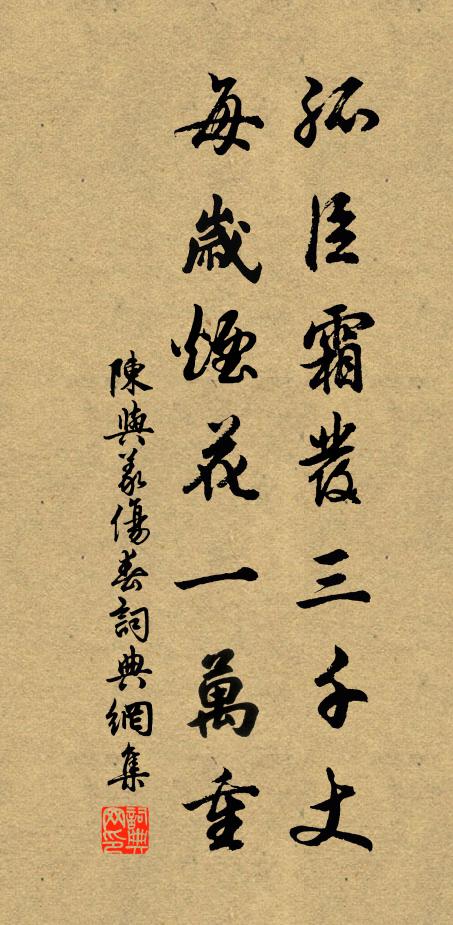 孤臣霜發三千丈
每歲煙花一萬重
陳與義傷春詞典網集
詞典網印